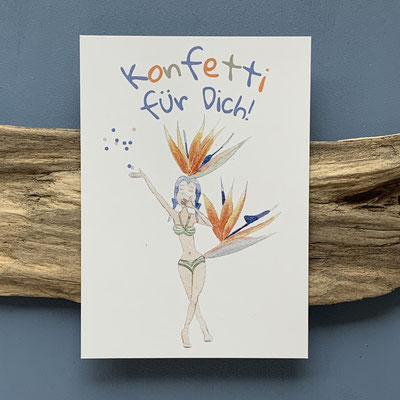 Konfetti
für Dich!